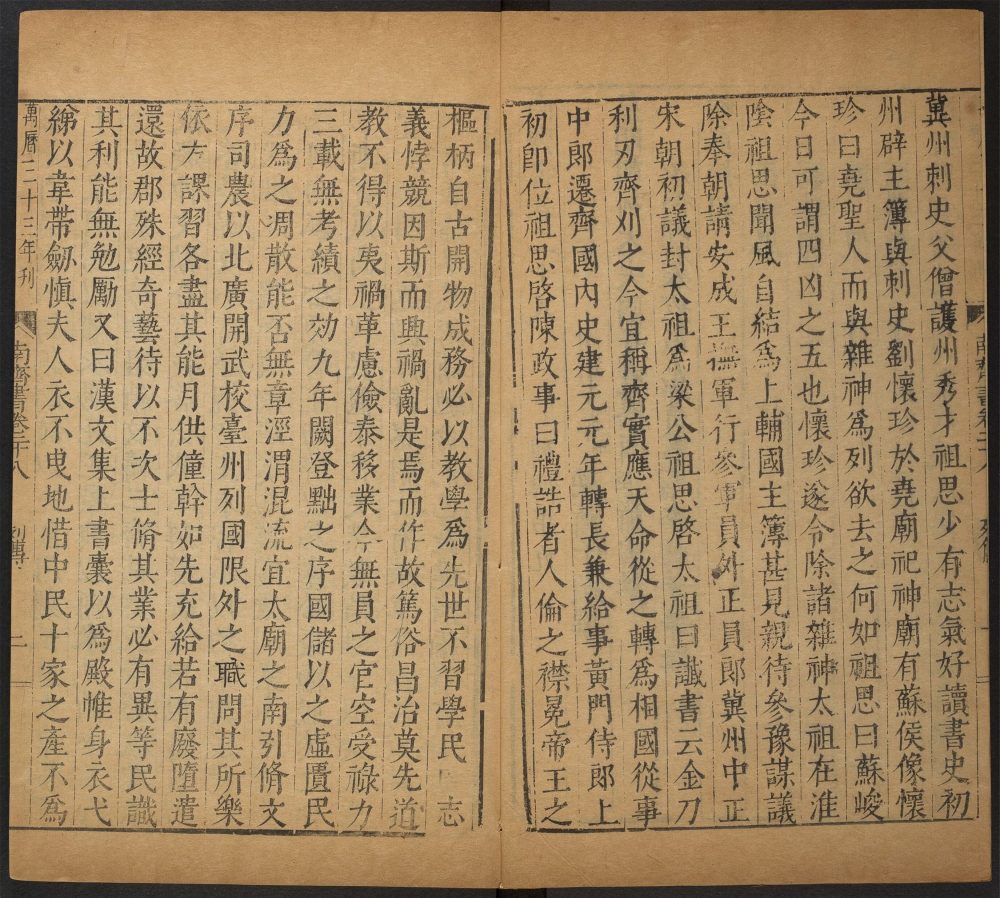 冀州刺史父僧護州秀才祖思少有志氣好讀書史初
州辟主簿與刺史劉懷珍於堯廟祀神廟有蘇侯像懷
珍曰堯聖人而與雜神爲列欲去之何如祖思曰蘇峻
今日可謂四凶之五也懷珍遂令除諸雜神太祖在淮
陰祖思聞風自結爲上輔國主簿甚見親待參豫謀議
除奉朝請安成王撫軍行參軍員外正員郎冀州中正
宋朝初議封太祖爲梁公祖思啓太祖曰讖書云金刀
利刃齊刈之今宜稱齊實應天命從之轉爲相國從事
中郎遷齊國內史建元元年轉長兼給事黃門侍郎上
初卽位祖思啓陳政事曰禮誥者人倫之襟冕帝王之
樞柄自古開物成務必以教學爲先世不習學民志
義悖競因斯而興禍亂是焉而作故篤俗昌治莫先道
教不得以夷禍革慮儉泰移業今無員之官空受祿力
三載無考績之効九年闕登黜之序國儲以之虛匱民
力爲之凋散能否無章涇渭混流宜太廟之南引脩文
序司農以北廣開武校臺州列國限外之職問其所樂
依方課習各盡其能月供僮幹如先充給若有廢墮遣
還故郡殊經奇藝待以不次士脩其業必有異等民識
其利能無勉勵又曰漢文集上書囊以爲殿帷身衣弋
綈以韋帶劒愼夫人衣不曳地惜中民十家之產不爲
萬曆三十三年刊
南齊書卷二十八
列傳
二